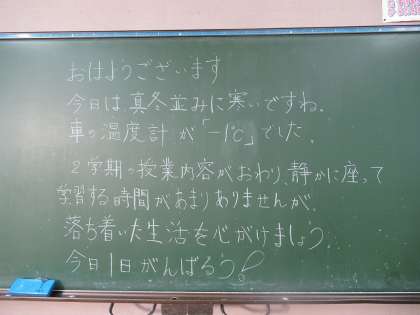 おはようございます
今日は真冬並みに寒いですね。
車の温度計が「-1℃」でした。
2学期の授業内容がおわり、静かに座って
学習する時間があまりありませんが、
落ち着いた生活を心がけましょう。
今日1日がんばろう!